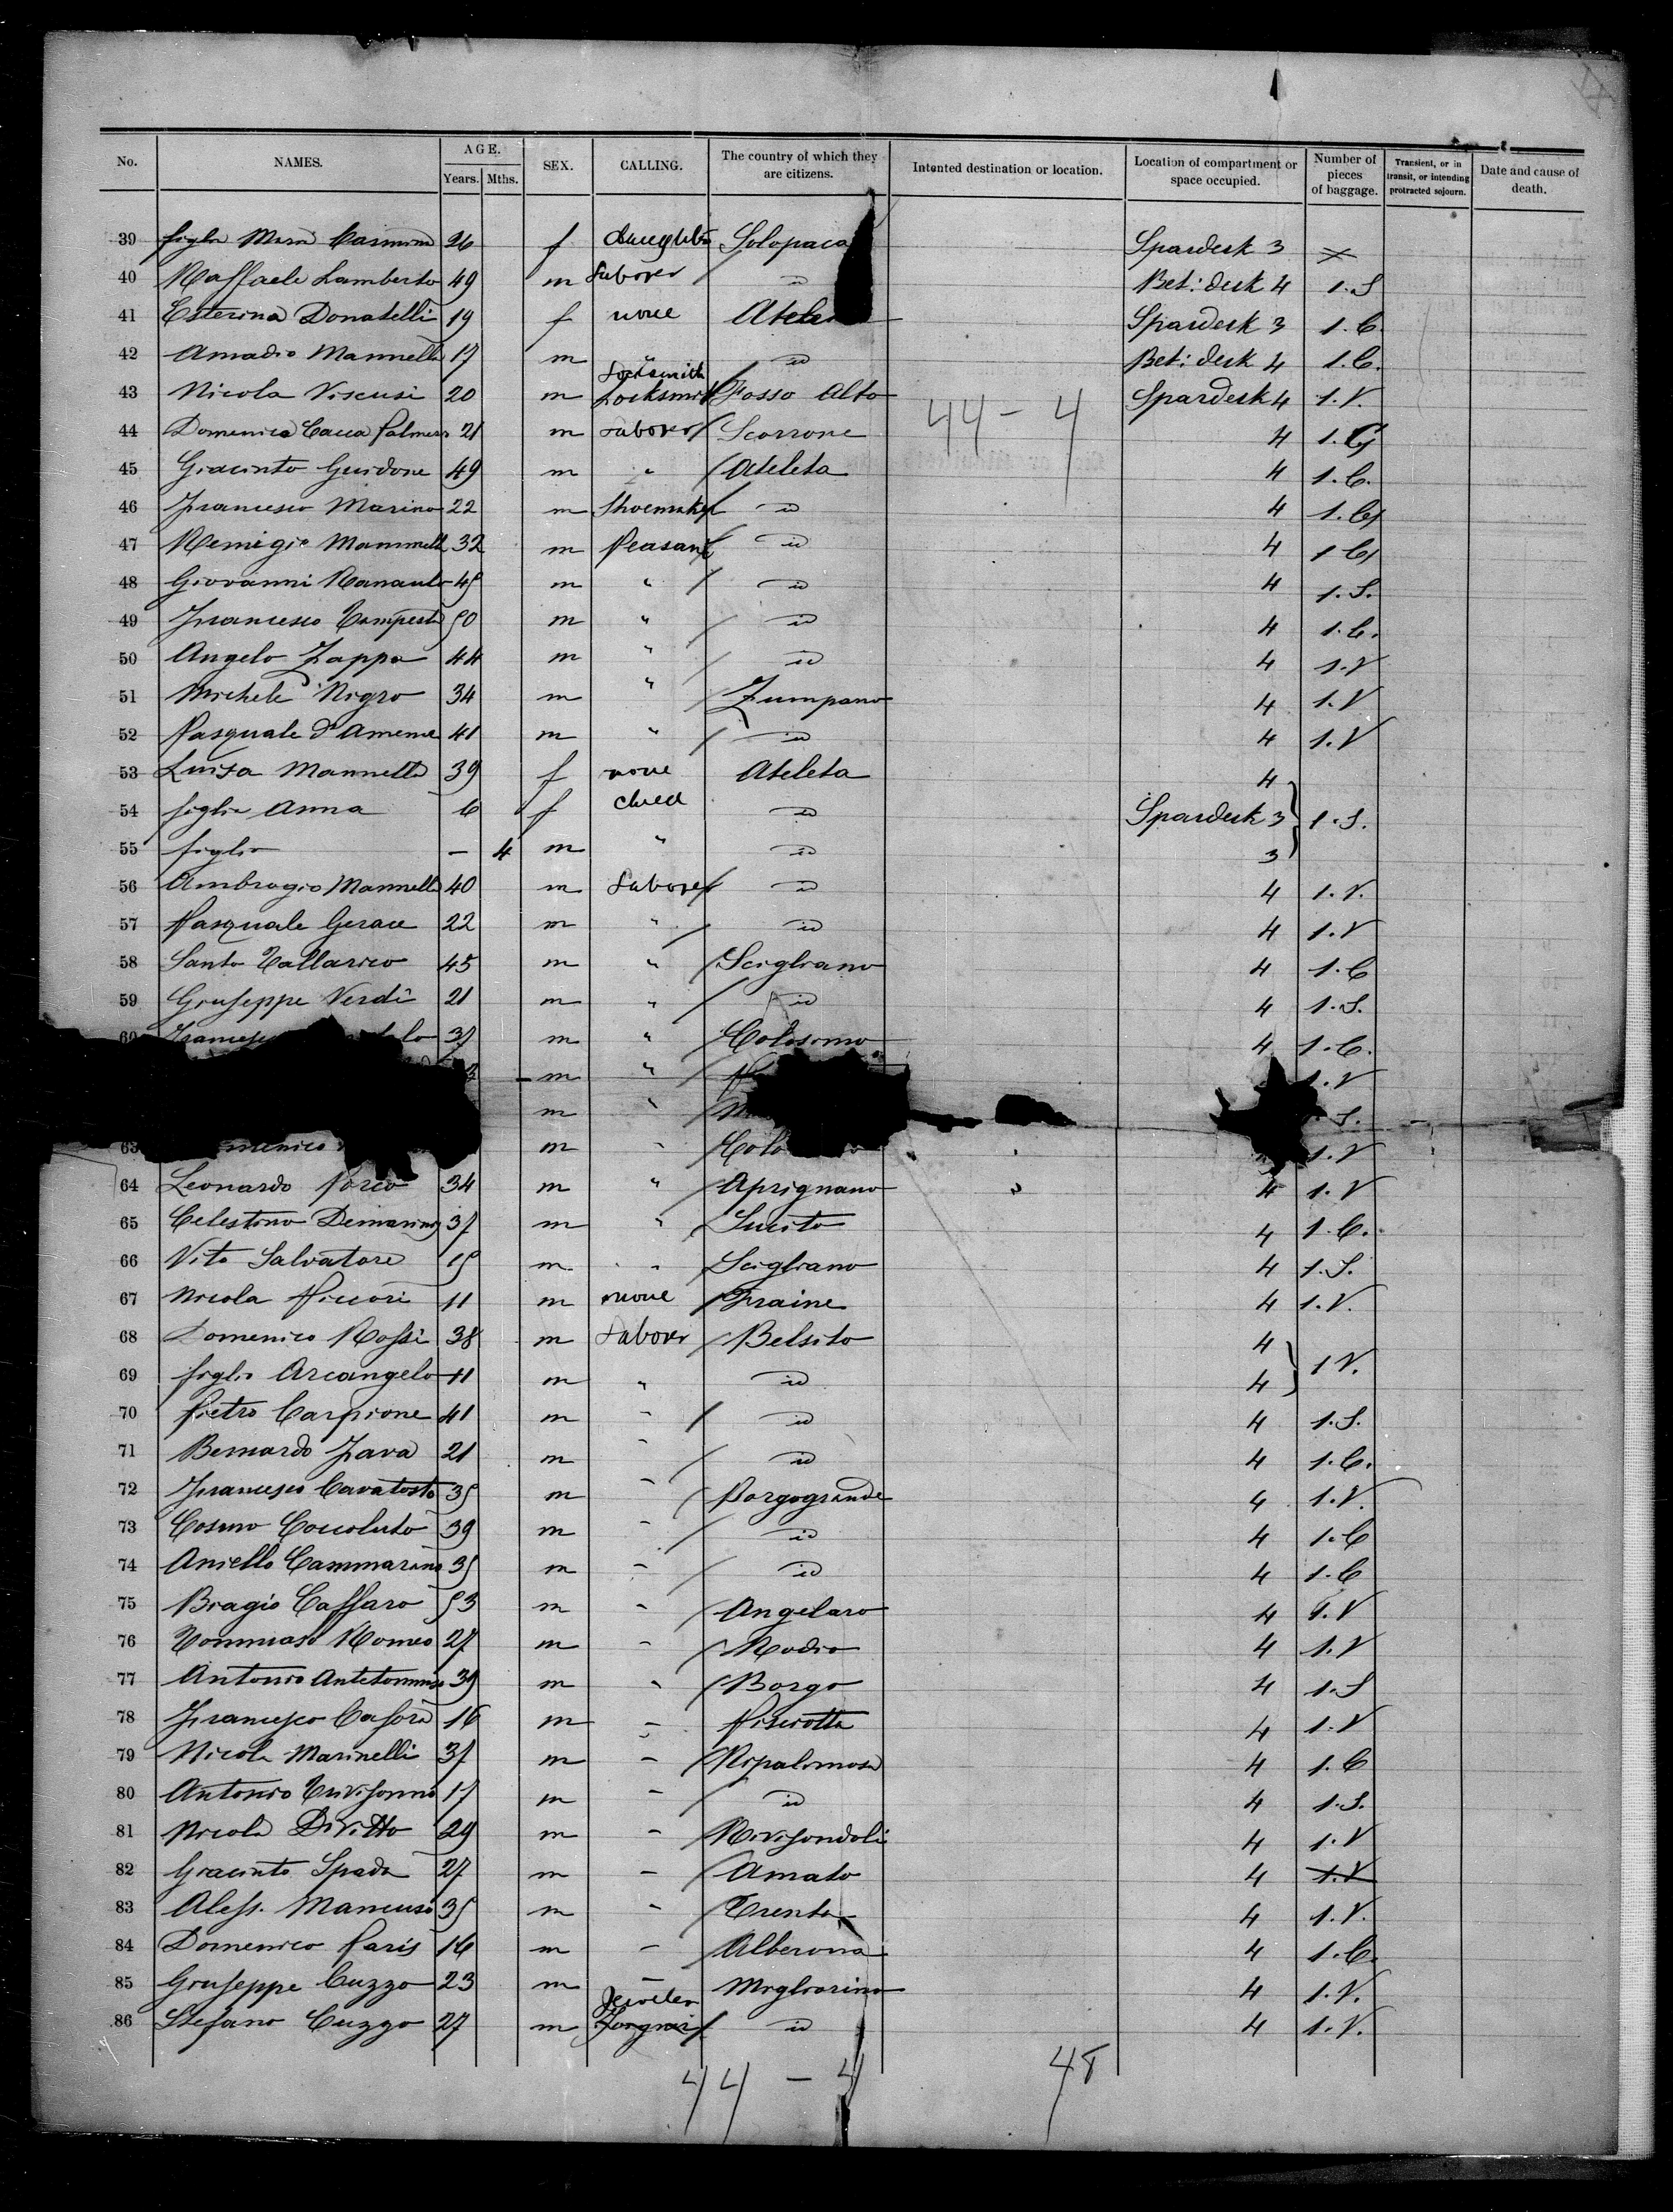 No. NAMES. AGE. Years. Mths. SEX. CALLING. The country of which they are citizens. Intented destination or location. Location of compartment or space occupied. Number of pieces of baggage. Transient, or in transit, or intending protracted sojourn. Date and cause of death.
39 figlia Maria 26 f daughter Solopaca Spardesk 3
40 Raffaele Lamberto 49 m Laborer id Bet: desk 4 1.S
41 Esterina Donatelli 19 f none Spardesk 3 1.C.
42 Amadio Mannella 17 m " id Bet: desk 4 1.C.
Locksmith
43 Nicola Viscusi 20 m Locksmith Fosso Alto 44 - 4 Spardesk 4 1.V.
44 Domenico Cacca Palmers 21 m Laborer Scorrone 4 1.C
45 Giacinto Guidone 49 m " Ateleta 4 1.C.
46 Francesco Marino 22 m Shoemaker id 4 1.C
47 Remigio Mannella 32 m Peasant id 4 1 C
48 Giovanni 45 m " id 4 1.S.
49 Francesco Tempesta 50 m " id 4 1.C.
50 Angelo Zappa 44 m " id 4 1.V
51 Michele Nigro 34 m " Zumpano 4 1.V
52 Pasquale d'Amema 41 m " id 4 1.V
53 Luisa Mannella 39 f none Ateleta 4
54 figlia Anna 6 f child id Spardesk 3 1.S.
55 figlio — 4 m " id 3
56 Ambrogio Mannella 40 m Laborer id 4 1.V.
57 Pasquale Gerace 22 m " id 4 1.V
58 Santo Tallarico 45 m " Scigliano 4 1.C
59 Giuseppe Verdi 21 m " id 4 1.S.
60 37 m " Colosimo 4 1.C.
m " 1.V
m " S.
63 m " 1.V
64 Leonardo Porco 34 m " Aprignano 4 1.V
65 Celestino Demarinis 37 m " Lucito 4 1.C.
66 Vito Salvatore 15 m " Scigliano 4 1.S.
67 Nicola Piccori 11 m none Fraine 4 1.V.
68 Domenico Rossi 38 m Laborer Belsito 4
69 figlio Arcangelo 11 m " id 4 1 V.
70 Pietro Carpione 41 m " id 4 1.S.
71 Bernardo Zava 21 m " id 4 1.C.
72 Francesco Cavatosta 35 m " Borgogrande 4 1.V.
73 Cosmo Coccoluto 39 m " id 4 1.C
74 Aniello Cammarano 35 m " id 4 1.C
75 Biagio Caffaro 53 m " Angelaro 4 1.V
76 Tommaso Romeo 27 m " Rodio 4 1.V
77 Antonio Antetommaso 39 m " Borgo 4 1.S
78 Francesco Cafora 16 m " Pisciotta 4 1.V
79 Nicola Marinelli 37 m " Ripalimosa 4 1.C
80 Antonio Trivisonno 17 m " id 4 1.S.
81 Nicola DiVitto 29 m " Rivisondoli 4 1.V
82 Giacinto Spada 27 m " Amato 4 1.V
83 Aless. Mancuso 35 m " Trenta 4 1.V.
84 Domenico Paris 16 m " Alberona 4 1.C.
85 Giuseppe Cuzzo 23 m " Migliarino 4 1.V.
Jeweler
86 Stefano Cuzzo 27 m id 4 1.V.
44 - 4 48